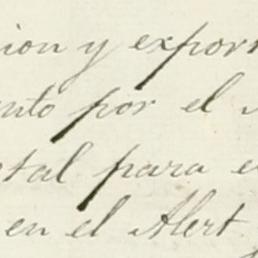 ion y expor
nto por el
tal para e
en el Alert